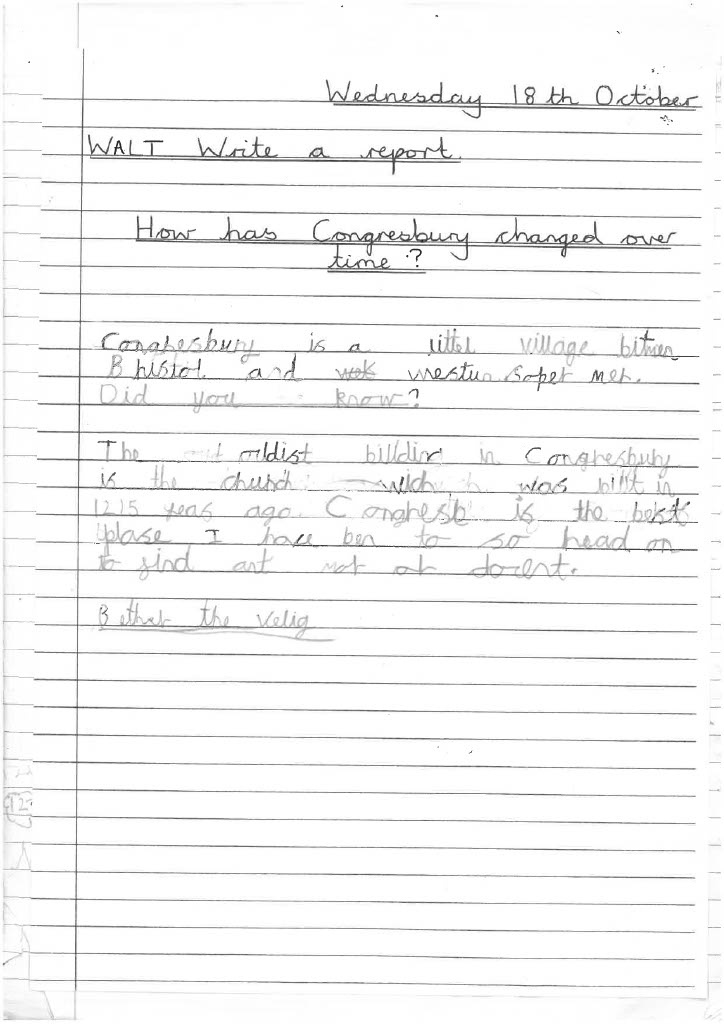 Wednesday 18th October
WALT Write a report.
How has Congresbury changed over
time?
Conghesbury is a littel village bitwen
Bhistol and westun soper mer.
Did you know?
The oldist billding in Conghesbury
is the church which was billt in
1215 yeas ago. Conghesb is the best
plase I have ben to so head on
to find
Bethat the velig